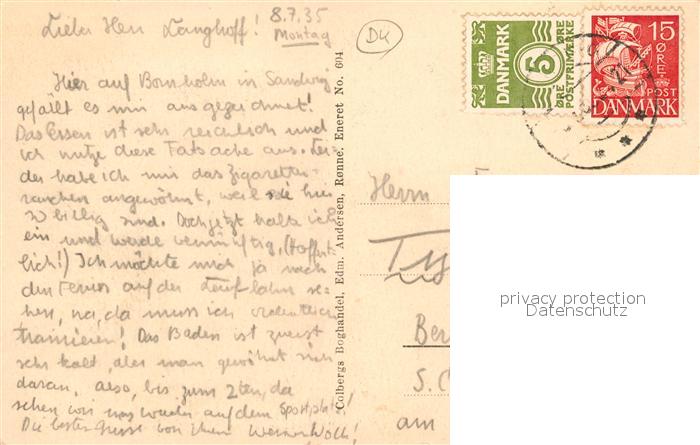 Lieber Herr Langhoff!
8.7.35
Montag
DK
Hier auf Bornholm in Sandvig
gefällt es mir ausgezeichnet!
Das Essen ist sehr reichlich und
ich nutze diese Tatsache aus. Lei-
der habe ich mir das Zigaretten-
rauchen angewöhnt, weil sie hier
so billig sind. Doch jetzt halte ich
ein und werde vernünftig, (Hoffent-
lich!) Ich möchte mich ja nach
den Ferien auf der Laufbahn se-
hen, na, da muss ich ordentlich
trainieren! Das Baden ist zuerst
sehr kalt, aber man gewöhnt sich
daran, also, bis zum 2ten, da
sehen wir uns wieder auf dem Sportplatz!
Die besten Grüsse von Ihrem Werner
Colbergs Boghandel, Edm. Andersen, Rønne. Eneret No. 604
DANMARK
5
ØRE
POSTFRIMÆRKE
15
ØRE
POST
DANMARK
Herrn
Ber
S.C
am
privacy protection
Datenschutz